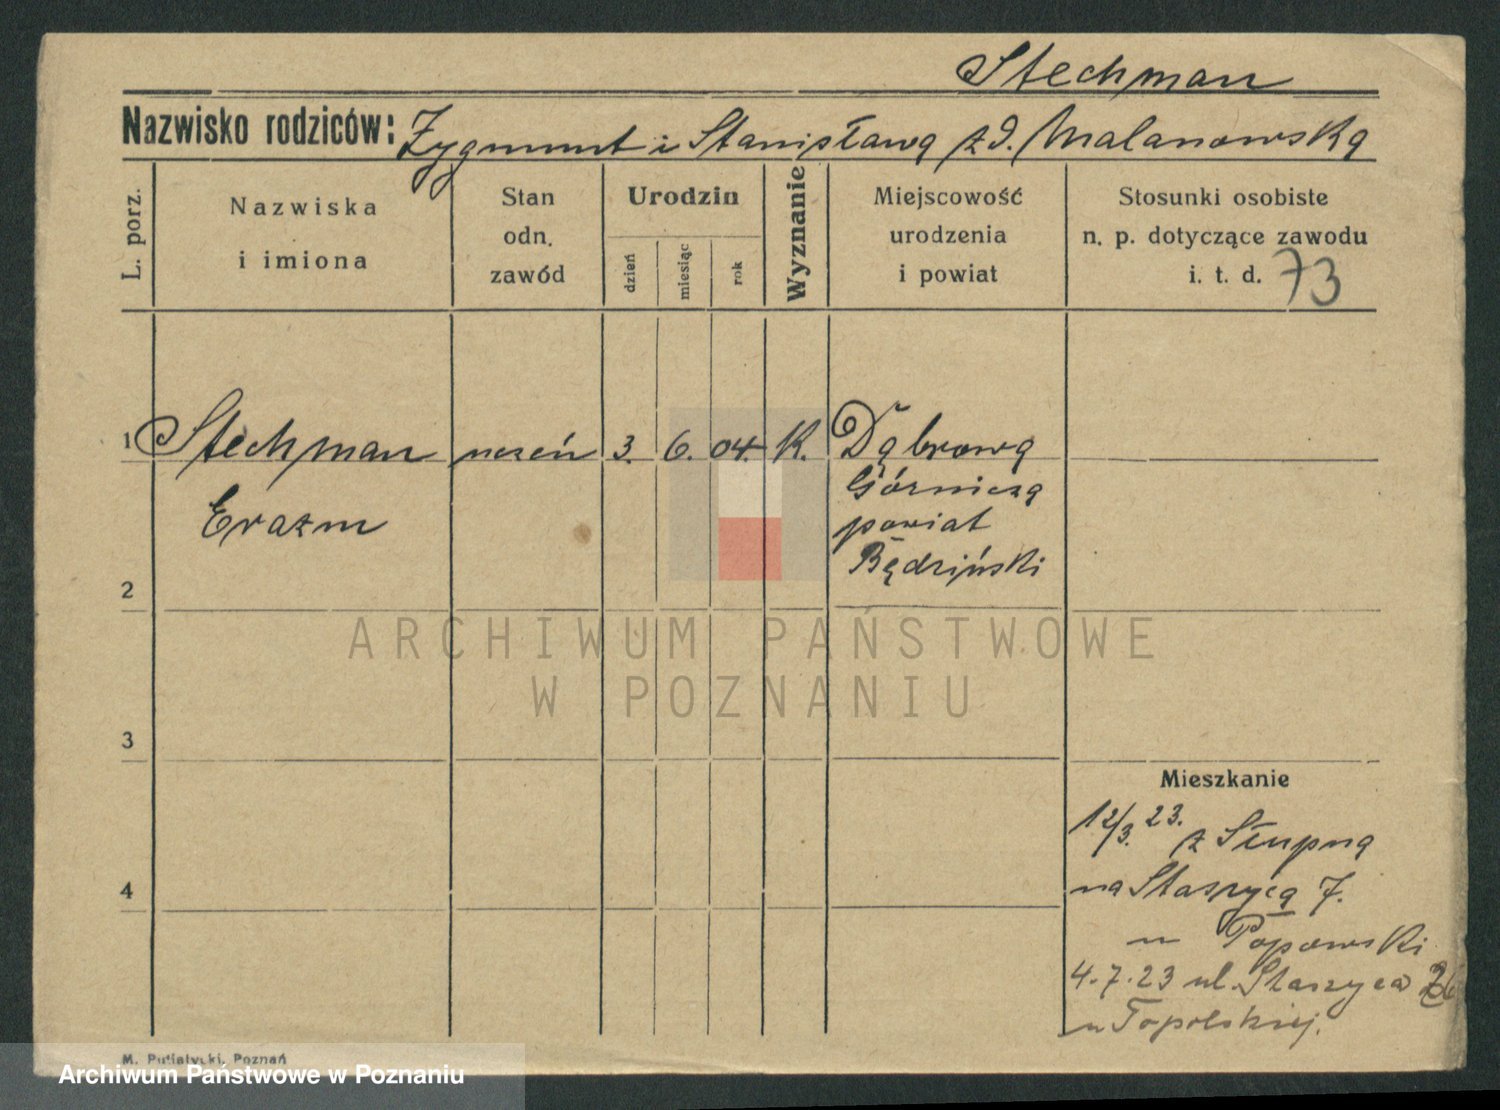 Stechman
Nazwisko rodziców: Zygmunt i Stanisława z d. Malanowska
L. porz.
Nazwiska
i imiona
Stan
odn.
zawód
Urodzin
dzień
miesiąc
rok
Wyznanie
Miejscowość
urodzenia
i powiat
Stosunki osobiste
n. p. dotyczące zawodu
i. t. d. 73
1 Stechman uczeń 3. 6. 04. K. Dąbrowa
Erazm
Górnicza
powiat
Będziński
2
ARCHIWUM PAŃSTWOWE
W POZNANIU
3
Mieszkanie
12/3. 23. z Słupna
na Staszyca 7.
u Popowski
4
4.7.23 ul. Staszyca 26
u Topolskiej.
M. Putiatycki, Poznań
Archiwum Państwowe w Poznaniu